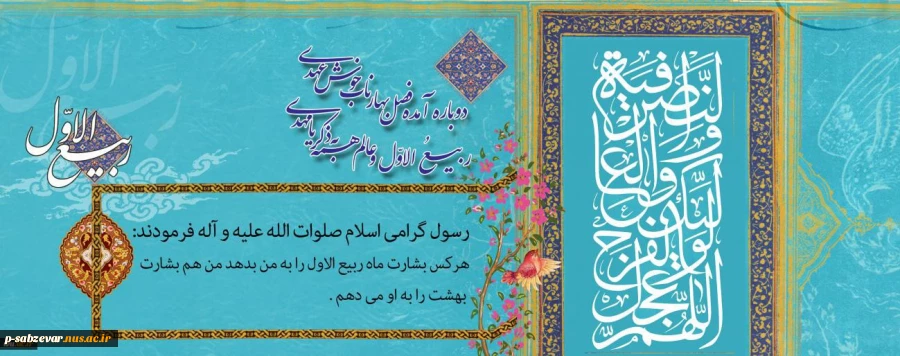 دوباره آمده فصل بهار ناب خوش عهدی
ربیعُ الاوّل و عالم همه به ذکر یا مهدی
ربیع الاوّل
ربیع الاوّل
رسول گرامی اسلام صلوات الله علیه و آله فرمودند:
هرکس بشارت ماه ربیع الاول را به من بدهد من هم بشارت
بهشت را به او می دهم .
اللّهمّ عجّل لولیّک الفرج والعافیة والنّصر
p-sabzevar.nus.ac.ir